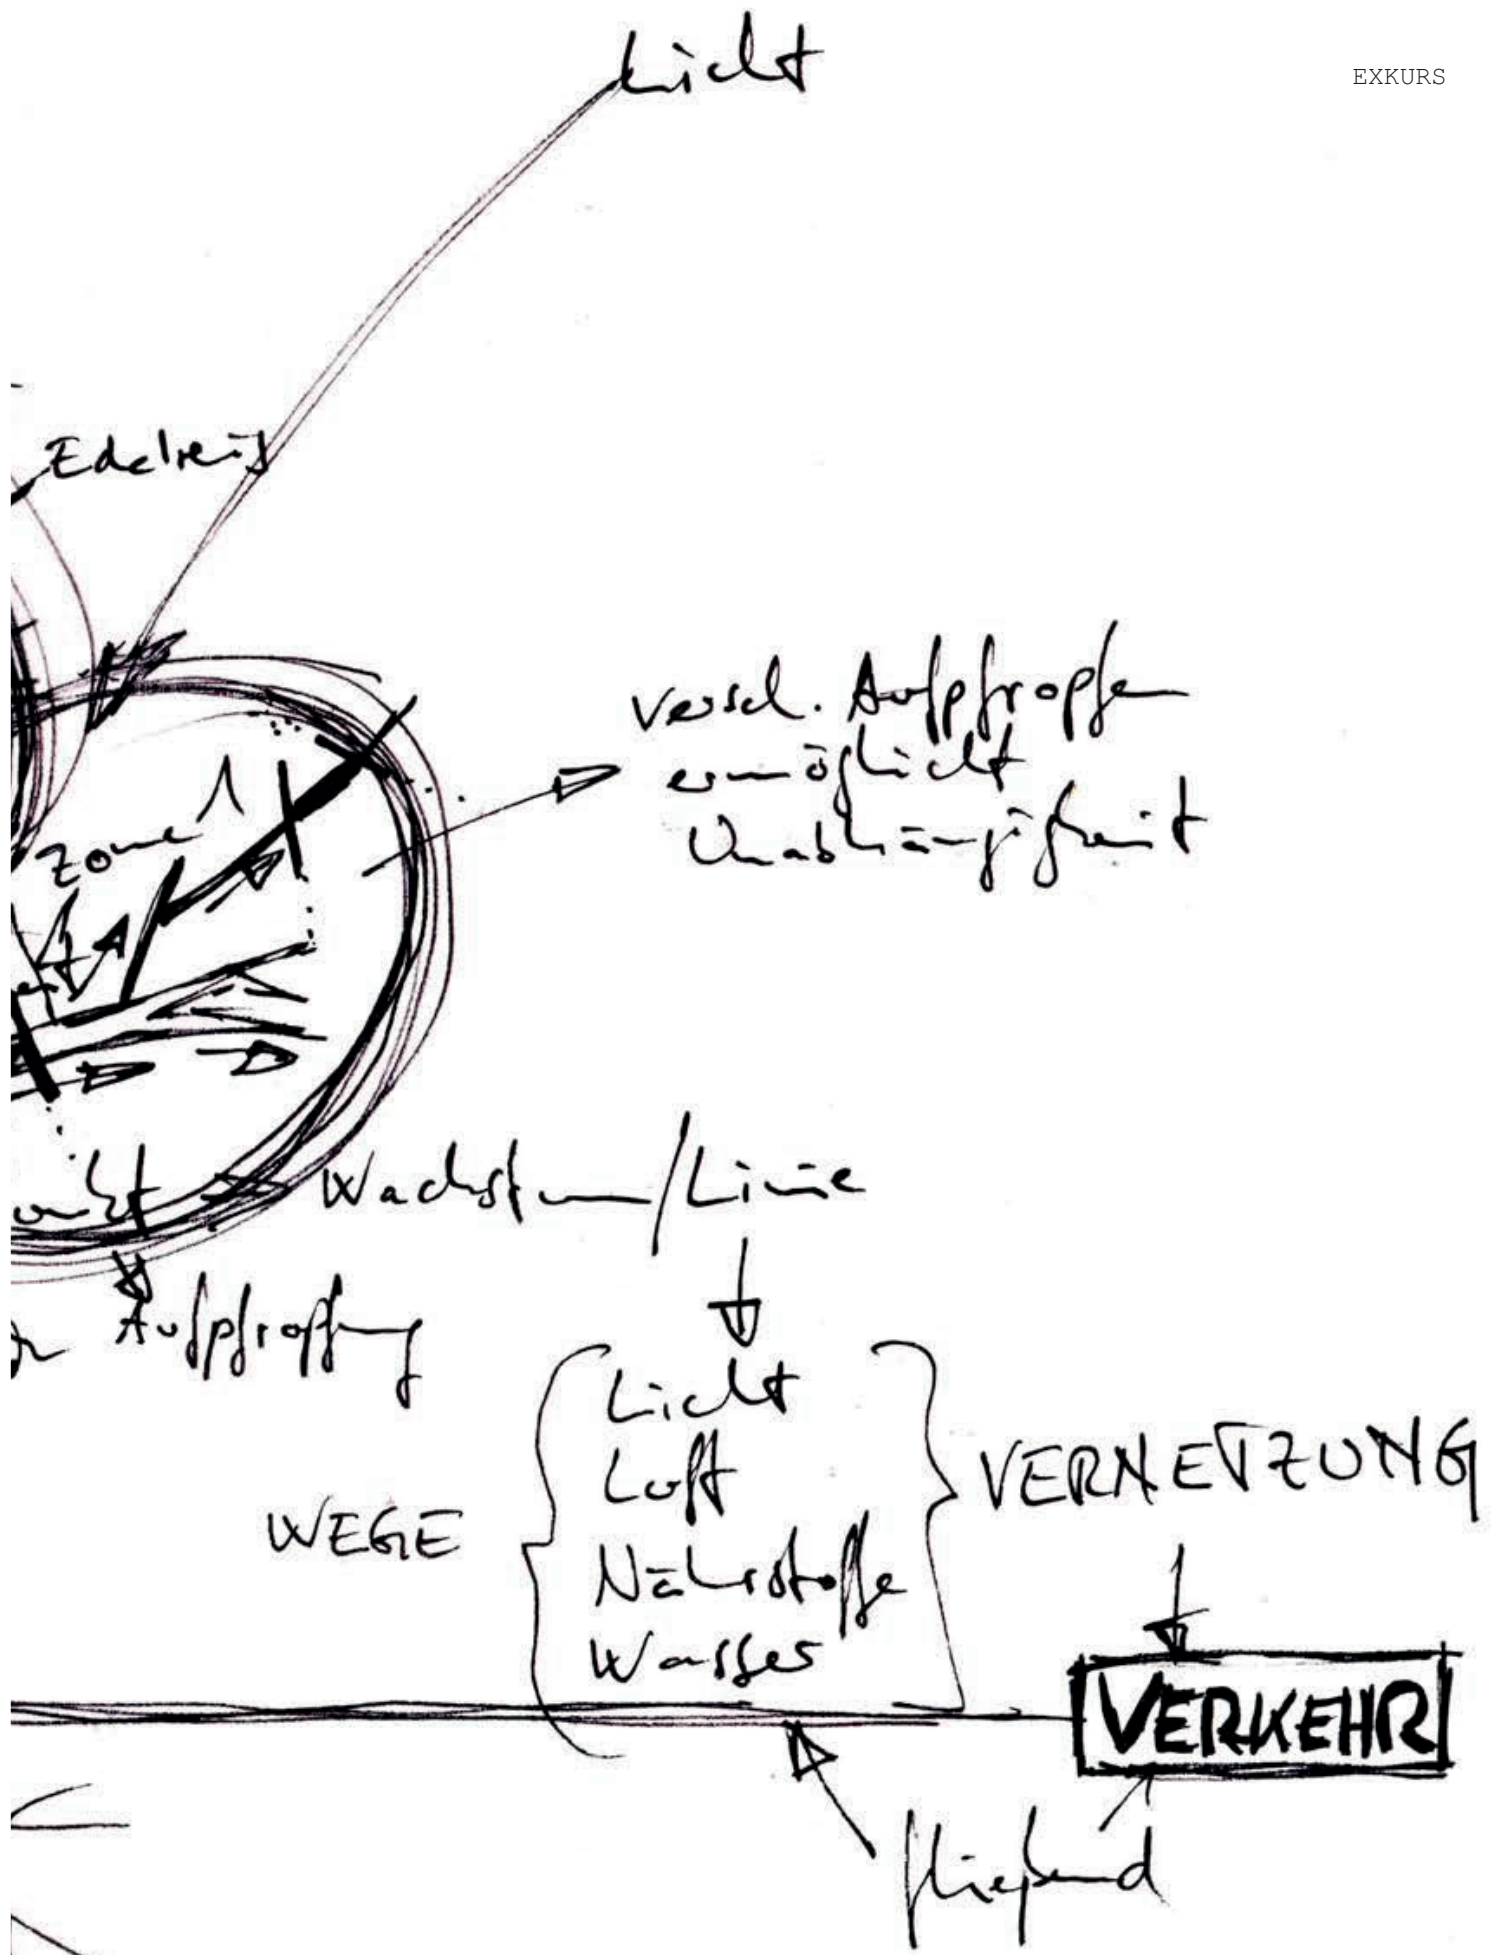 EXKURS
Licht
Edelreis
versch. Aufpfropfen
ermöglicht
Unabhängigkeit
Zone 1
Wachstum/Linie
Aufpfropfung
Licht
Luft
Nährstoffe
Wasser
WEGE
VERNETZUNG
VERKEHR
fließend